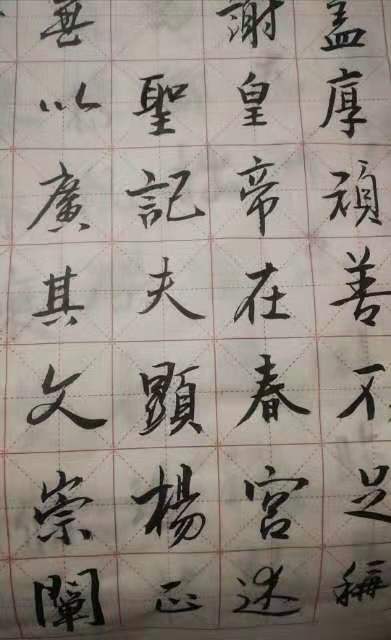 盖厚頑善不足稱
謝皇帝在春宮述
聖記夫顯楊正
無以廣其文崇闡